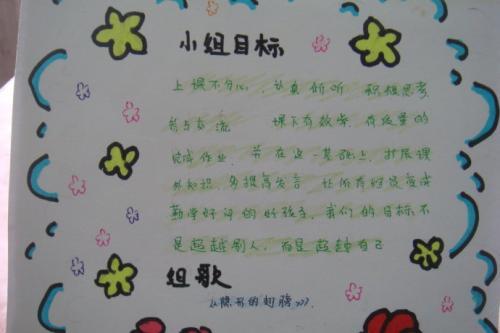 小组目标
上课不分心,认真倾听 积极思考
参与交流 课下有效率,有质量的
完成作业. 并在这一基础上,扩展课
外知识,多提高发言 让所有组员变成
勤学好问的好孩子,我们的目标不
是超越别人,而是超越自己
组歌
《隐形的翅膀》